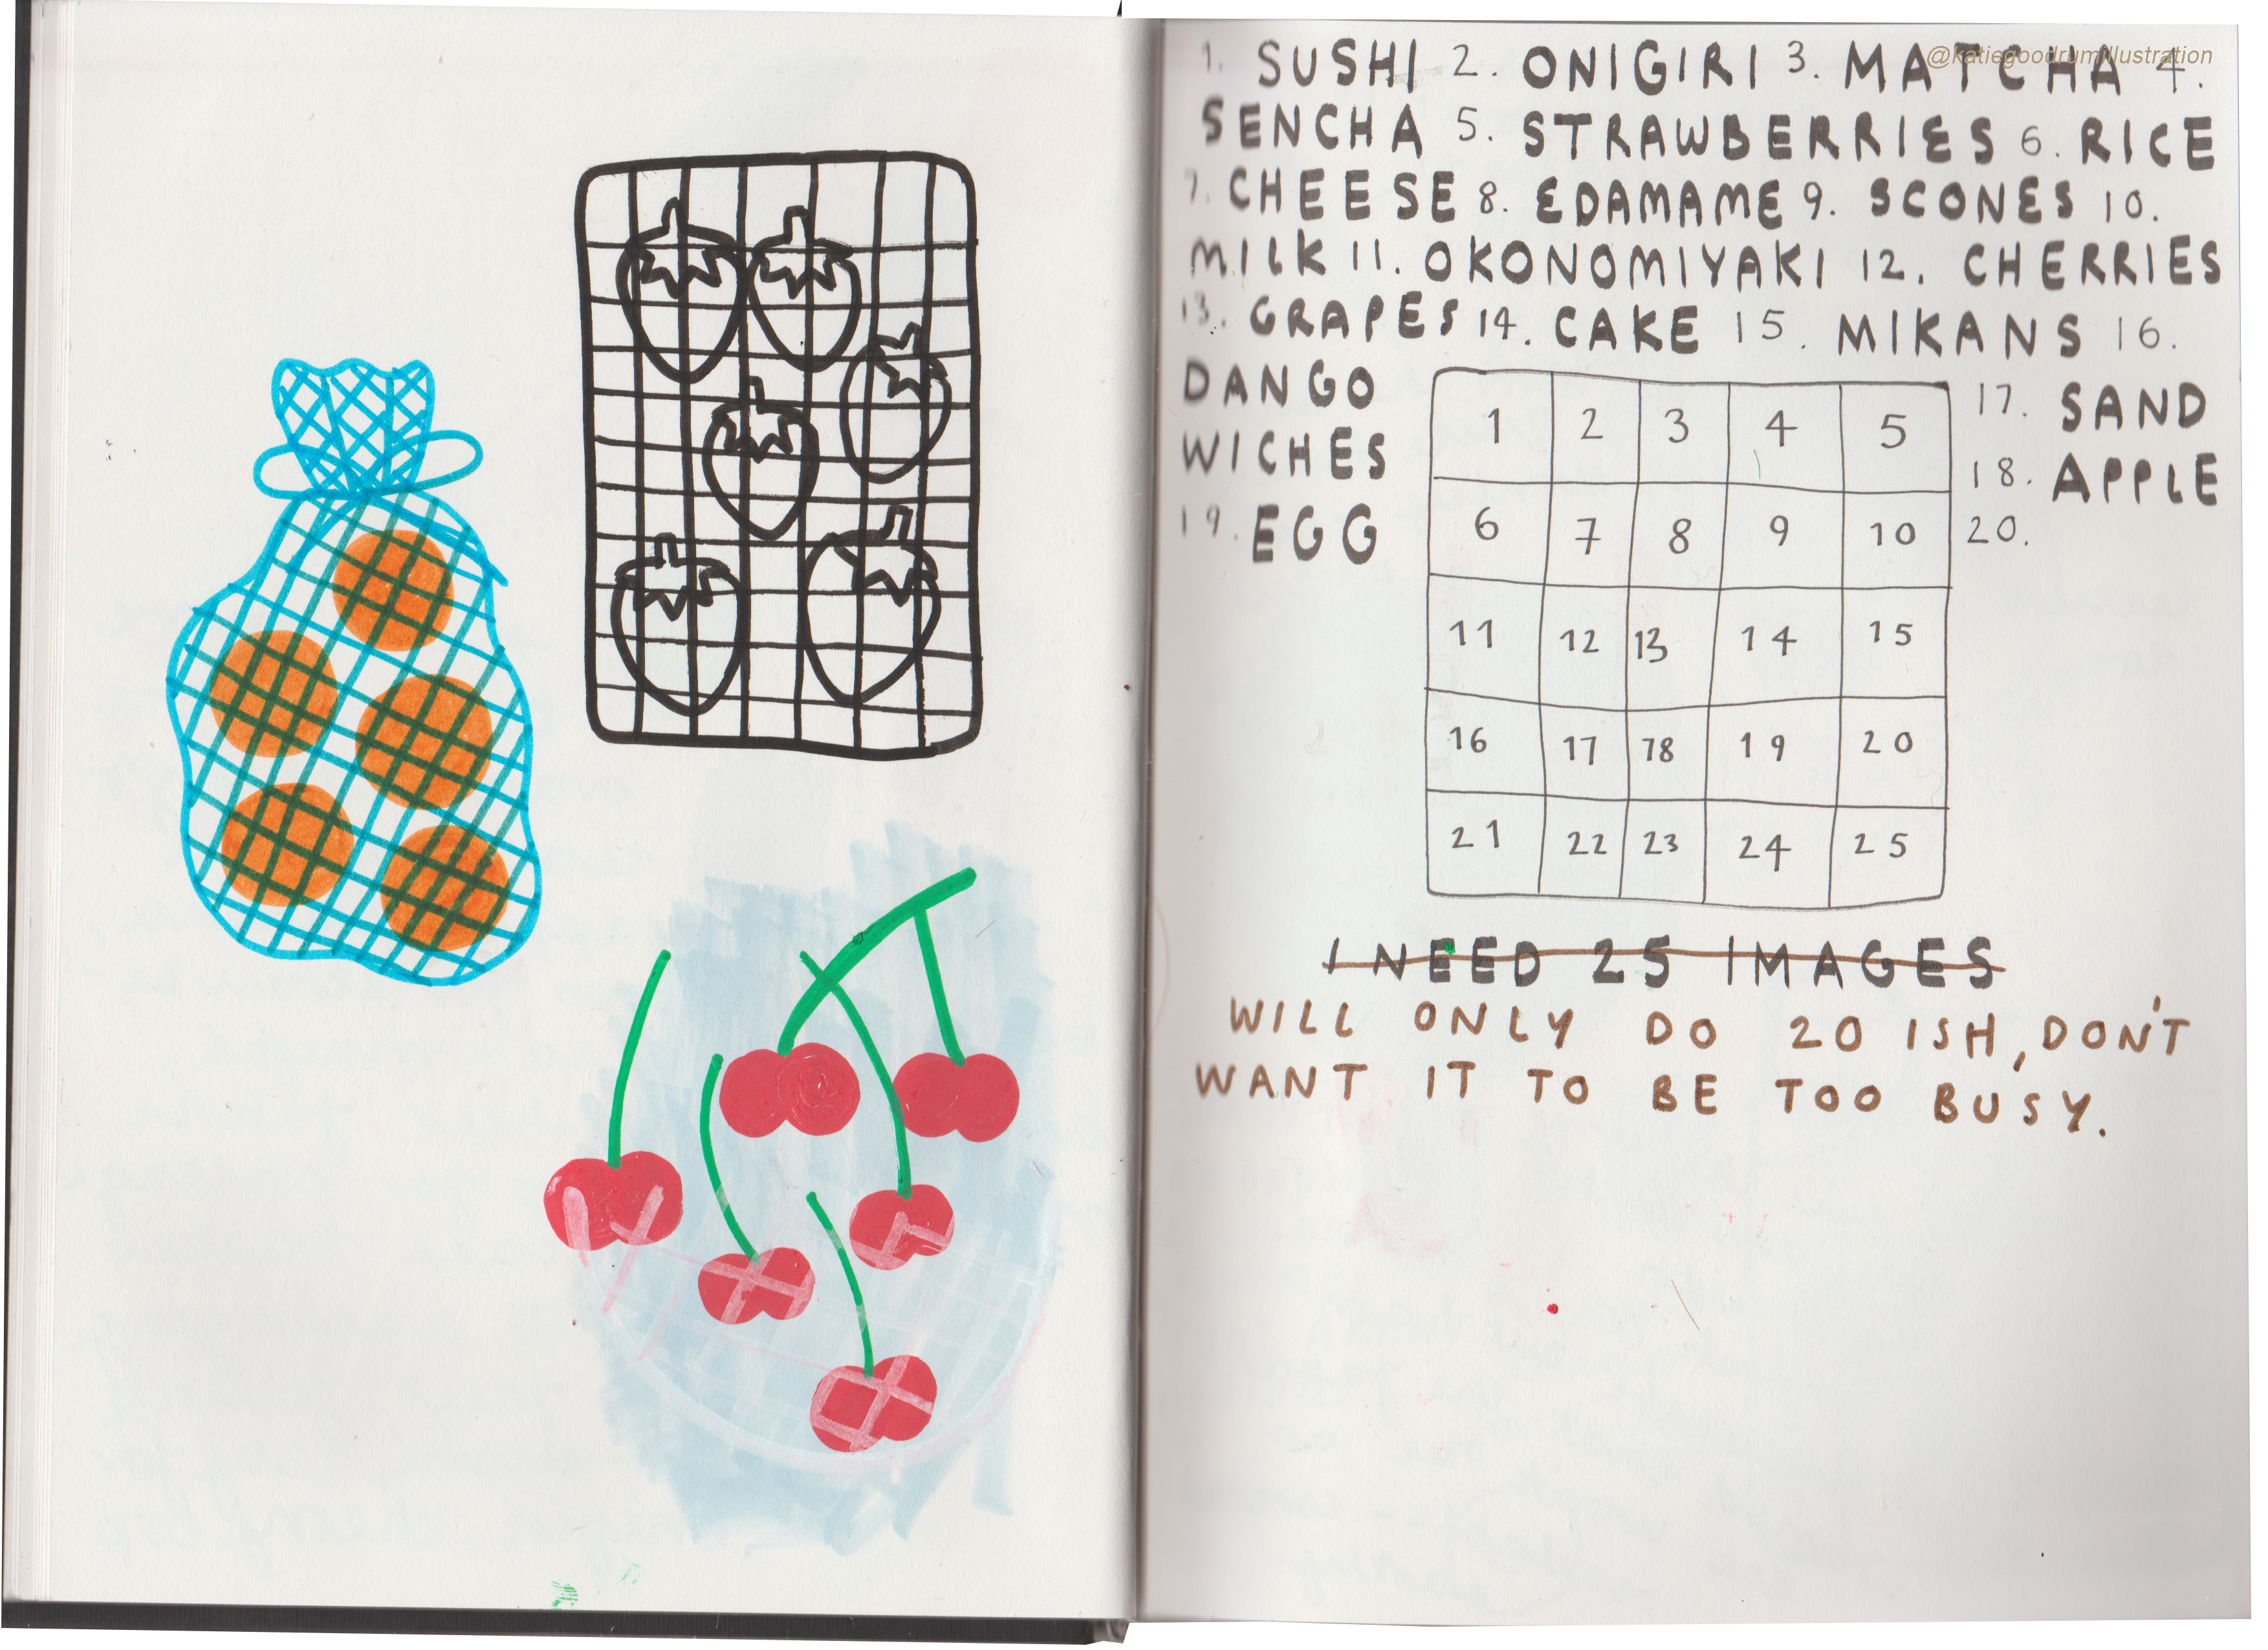 @katiegoodrumillustration
1. SUSHI 2. ONIGIRI 3. MATCHA 4.
SENCHA 5. STRAWBERRIES 6. RICE
7. CHEESE 8. EDAMAME 9. SCONES 10.
MILK 11. OKONOMIYAKI 12. CHERRIES
13. GRAPES 14. CAKE 15. MIKANS 16.
DANGO 17. SAND
WICHES 18. APPLE
19. EGG 20.
1 2 3 4 5
6 7 8 9 10
11 12 13 14 15
16 17 18 19 20
21 22 23 24 25
I NEED 25 IMAGES
WILL ONLY DO 20 ISH, DON'T
WANT IT TO BE TOO BUSY.